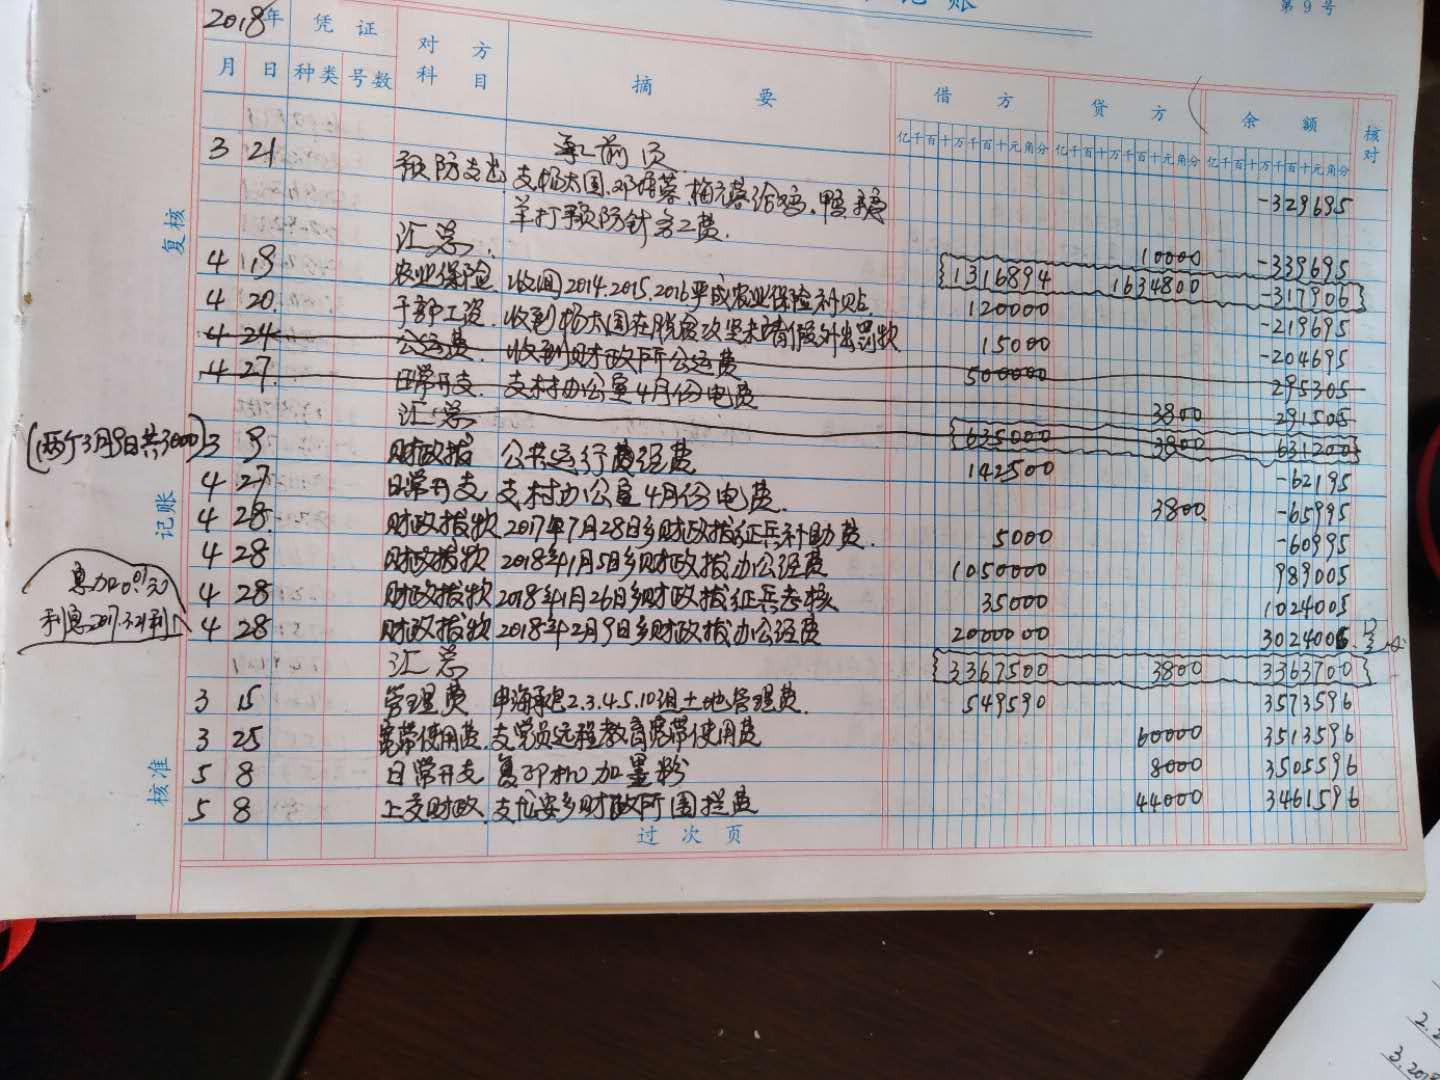 记账
第 9 号
2018年 凭证 对方科目 摘要 借方 贷方 余额 核对
月 日 种类 号数
亿千百十万千百十元角分 亿千百十万千百十元角分 亿千百十万千百十元角分
承前页 -329695
3 21 预防支出 支杨太国、邓 给鸡、鸭
羊打预防针务工费. 10000 -339695
汇总. 1316894 1634800 -317906
4 19 农业保险 收回2014.2015.2016年成农业保险补贴. 120000 -219695
4 20. 干部工资. 收到杨太国在脱贫攻坚未请假外出罚款 15000 -204695
4 24 公运费. 收到财政所公运费 500000 295305
4 27. 日常开支. 支村办公室4月份电费 3800 291505
汇总 635000 3800 631200
(两个3月9日共3000) 3 9 财政拨 公共运行费经费 142500 -62195
4 27 日常开支 支村办公室4月份电费. 3800. -65995
4 28. 财政拨款 2017年7月28日乡财政拨征兵补助费. 5000 -60995
4 28 财政拨款 2018年1月5日乡财政拨办公经费 1050000 989005
4 28 财政拨款 2018年1月26日乡财政拨征兵考核 35000 1024005
4 28 财政拨款 2018年2月9日乡财政拨办公经费 2000000 3024006.
息加0.01元
利息2017.3.21利
汇总 3367500 3800 3363700
3 15 管理费 申海承包2.3.4.5.10组土地管理费. 549590 3573596
3 25 宽带使用费. 支党员远程教育宽带使用费 60000 3513596
5 8 日常开支 复印机加墨粉 8000 3505596
5 8 上交财政 支仙安乡财政所围栏费 44000 3461596
过次页
复核
记账
核准
2.2
3.2018